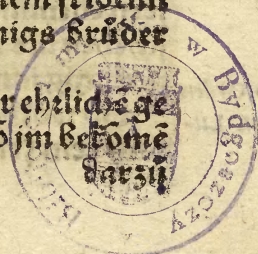 nigs Brüder
r ehrlichē ge
o jm bekomē
darzů
w Bydgoszczy